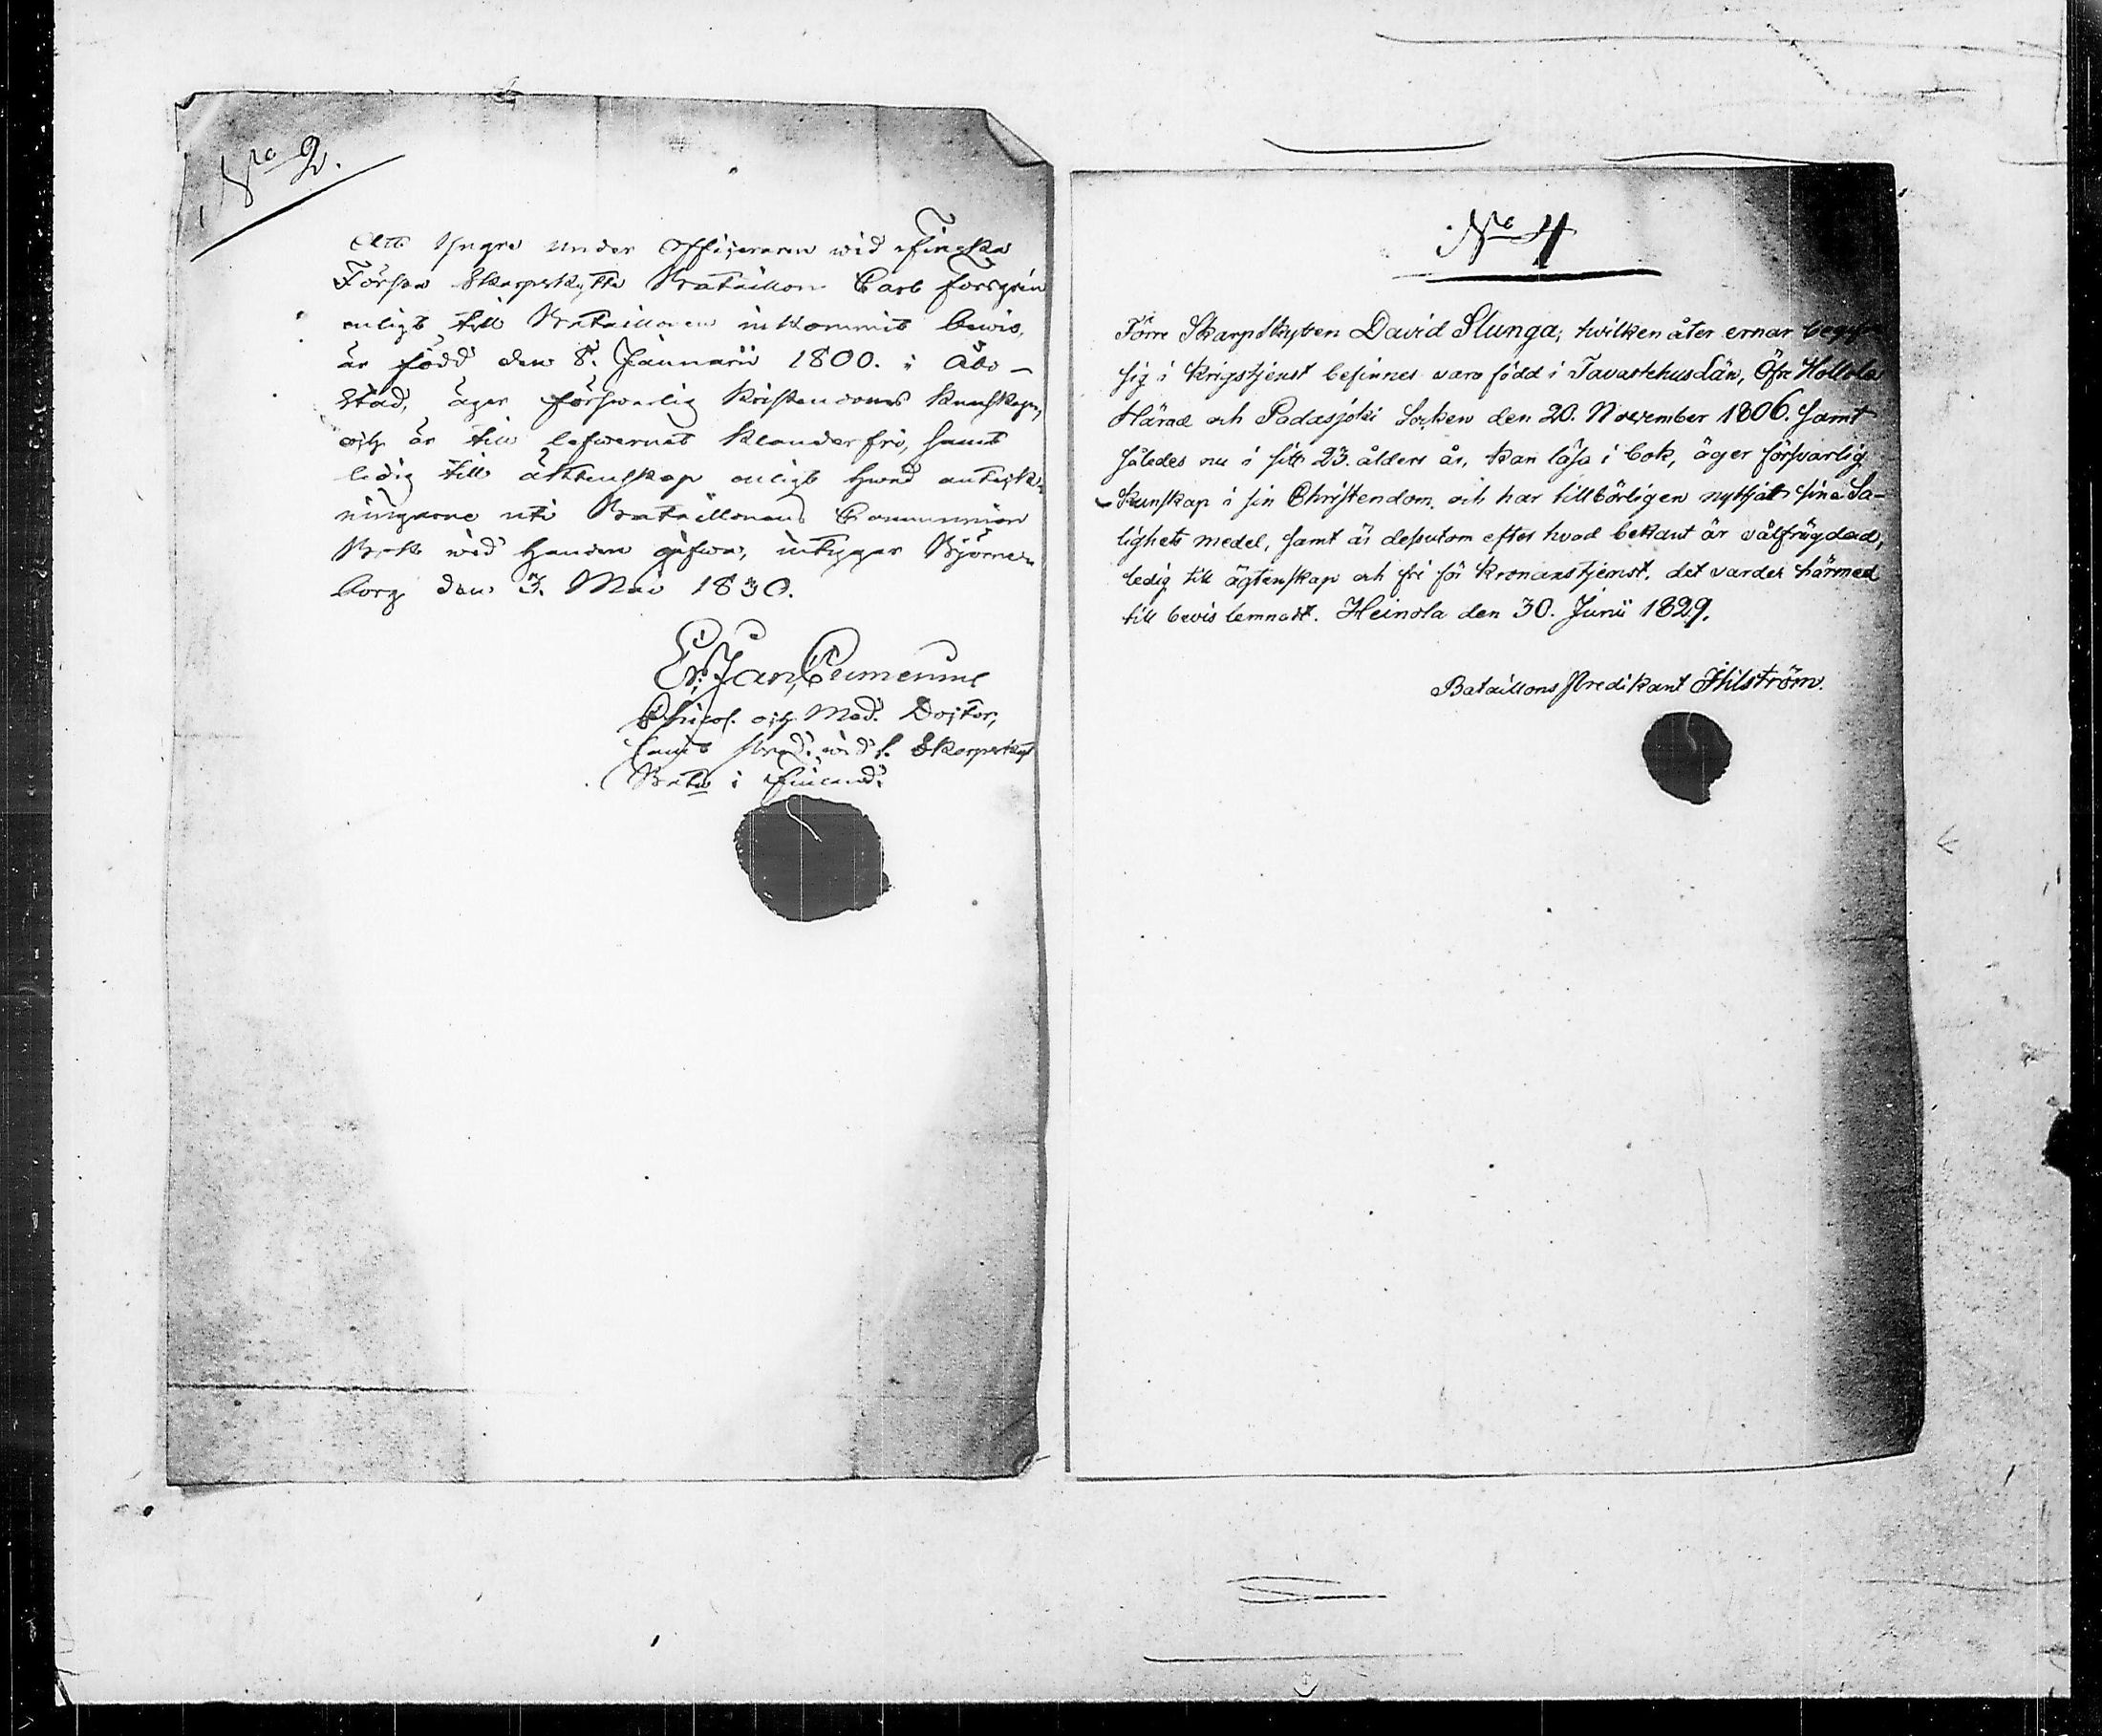 No 2.
Att Yngre under Officeraren wid Finska
Första Skarpskytte Bataillon Carl Forsgrén
enligt till Bataillonen inkommit bewis,
är född den 8. Januarii 1800. i Åbo
Stad, äger förswarlig Kristendoms kunskap,
och är till lefwernet klanderfri, samt
ledig till äktenskap enligt hwad anteck-
ningarne uti Bataillonens Communion
Bok wid handen gifwa, intygar Björne-
borg den 3. Maii 1830.
Er. Jan.
Philos. och Med. Doctor,
Pred. wid 1. Skarpskyt
Batn i Finland.
No 4
Förre Skarpskytten David Slunga, hvilken åter ernar
sig i krigstjenst befinnes vara född i Tavastehus Län, Öfre Hollola
Härad och Padasjoki Socken den 20. November 1806. samt
således nu i sitt 23. ålders år, kan läsa i bok, äger försvarlig
kunskap i sin Christendom, och har tillbörligen nyttjat sina Sa-
lighets medel, samt är dessutom efter hvad bekant är välfrägdad,
ledig till ägtenskap och fri för kronans tjenst, det varder härmed
till bevis lemnadt. Heinola den 30. Junii 1829.
Bataillons Predikant Hilström.